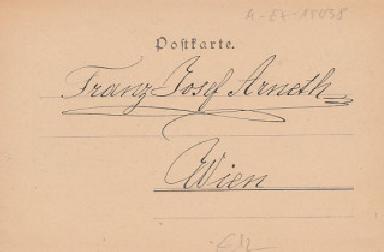 A-EX-15038
Postkarte.
Franz Josef Arneth
Wien